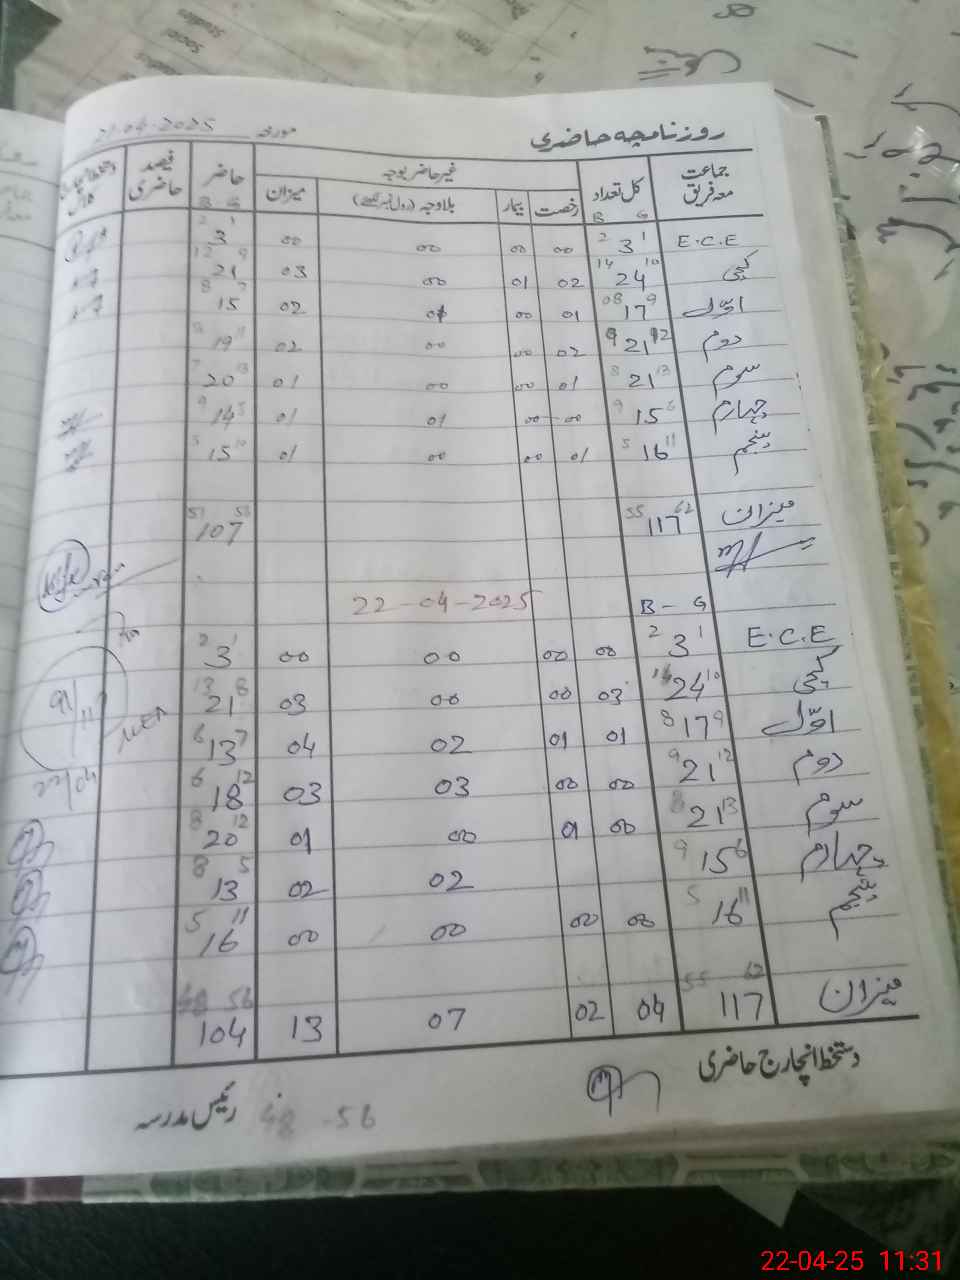 روزنامچہ حاضری مورخہ 21-04-2025
جماعت معہ فریق کل تعداد غیر حاضر بوجہ حاضر فیصد حاضری
B G رخصت بیمار بلاوجہ میزان B G
E.C.E 2 3 1 00 00 00 00 2 3 1
کچی 14 24 10 02 01 00 03 12 21 9
اوّل 08 17 9 01 00 01 02 8 15 7
دوم 9 21 12 02 00 00 02 8 19 11
سوم 8 21 13 01 00 00 01 7 20 13
چہارم 9 15 6 00 00 01 01 9 14 5
پنجم 5 16 11 01 00 00 01 5 15 10
میزان 55 117 62 107
22-04-2025 B-G
E.C.E 2 3 1 00 00 00 00 2 3 1
کچی 14 24 10 03 00 00 03 13 21 8
اوّل 8 17 9 01 01 02 04 6 13 7
دوم 9 21 12 00 00 03 03 6 18 12
سوم 8 21 13 00 01 00 01 8 20 12
چہارم 9 15 6 02 02 8 13 5
پنجم 5 16 11 00 00 00 00 5 16 11
میزان 55 117 62 04 02 07 13 48 56 104
دستخط انچارج حاضری
رئیس مدرسہ 48-56
22-04-25 11:31